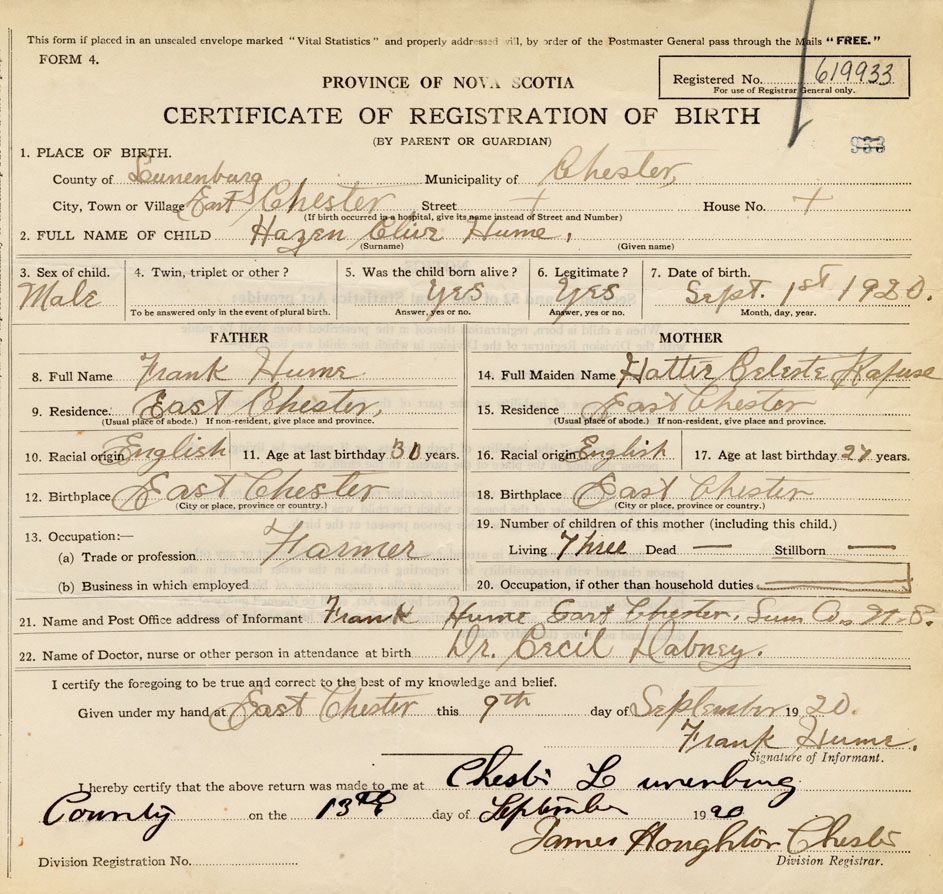 This form if placed in an unsealed envelope marked "Vital Statistics" and properly addressed will, by order of the Postmaster General pass through the Mails "FREE."
FORM 4.
PROVINCE OF NOVA SCOTIA
Registered No. 619933
For use of Registrar General only.
CERTIFICATE OF REGISTRATION OF BIRTH
(BY PARENT OR GUARDIAN)
953
1. PLACE OF BIRTH.
County of Lunenburg Municipality of Chester,
City, Town or Village East Chester Street + House No. +
(If birth occurred in a hospital, give its name instead of Street and Number)
2. FULL NAME OF CHILD Hazen Clive Hume,
(Surname) (Given name)
3. Sex of child. 4. Twin, triplet or other? 5. Was the child born alive? 6. Legitimate? 7. Date of birth.
Male Yes Yes Sept. 1st 1920.
To be answered only in the event of plural birth. Answer, yes or no. Answer, yes or no. Month, day, year.
FATHER MOTHER
8. Full Name Frank Hume 14. Full Maiden Name Hattie Celeste Rafuse
9. Residence. East Chester, 15. Residence East Chester
(Usual place of abode.) If non-resident, give place and province. (Usual place of abode.) If non-resident, give place and province.
10. Racial origin English 11. Age at last birthday 30 years. 16. Racial origin English 17. Age at last birthday 27 years.
12. Birthplace East Chester 18. Birthplace East Chester
(City or place, province or country.) (City or place, province or country.)
13. Occupation:— 19. Number of children of this mother (including this child.)
(a) Trade or profession Farmer Living Three Dead — Stillborn —
(b) Business in which employed 20. Occupation, if other than household duties
21. Name and Post Office address of Informant Frank Hume East Chester, Lun Co., N.S.
22. Name of Doctor, nurse or other person in attendance at birth Dr. Cecil
I certify the foregoing to be true and correct to the best of my knowledge and belief.
Given under my hand at East Chester this 9th day of September 1920.
Frank Hume,
Signature of Informant.
I hereby certify that the above return was made to me at Chester Lunenburg
County on the 13th day of September 1920
James Houghton Chester
Division Registration No. Division Registrar.